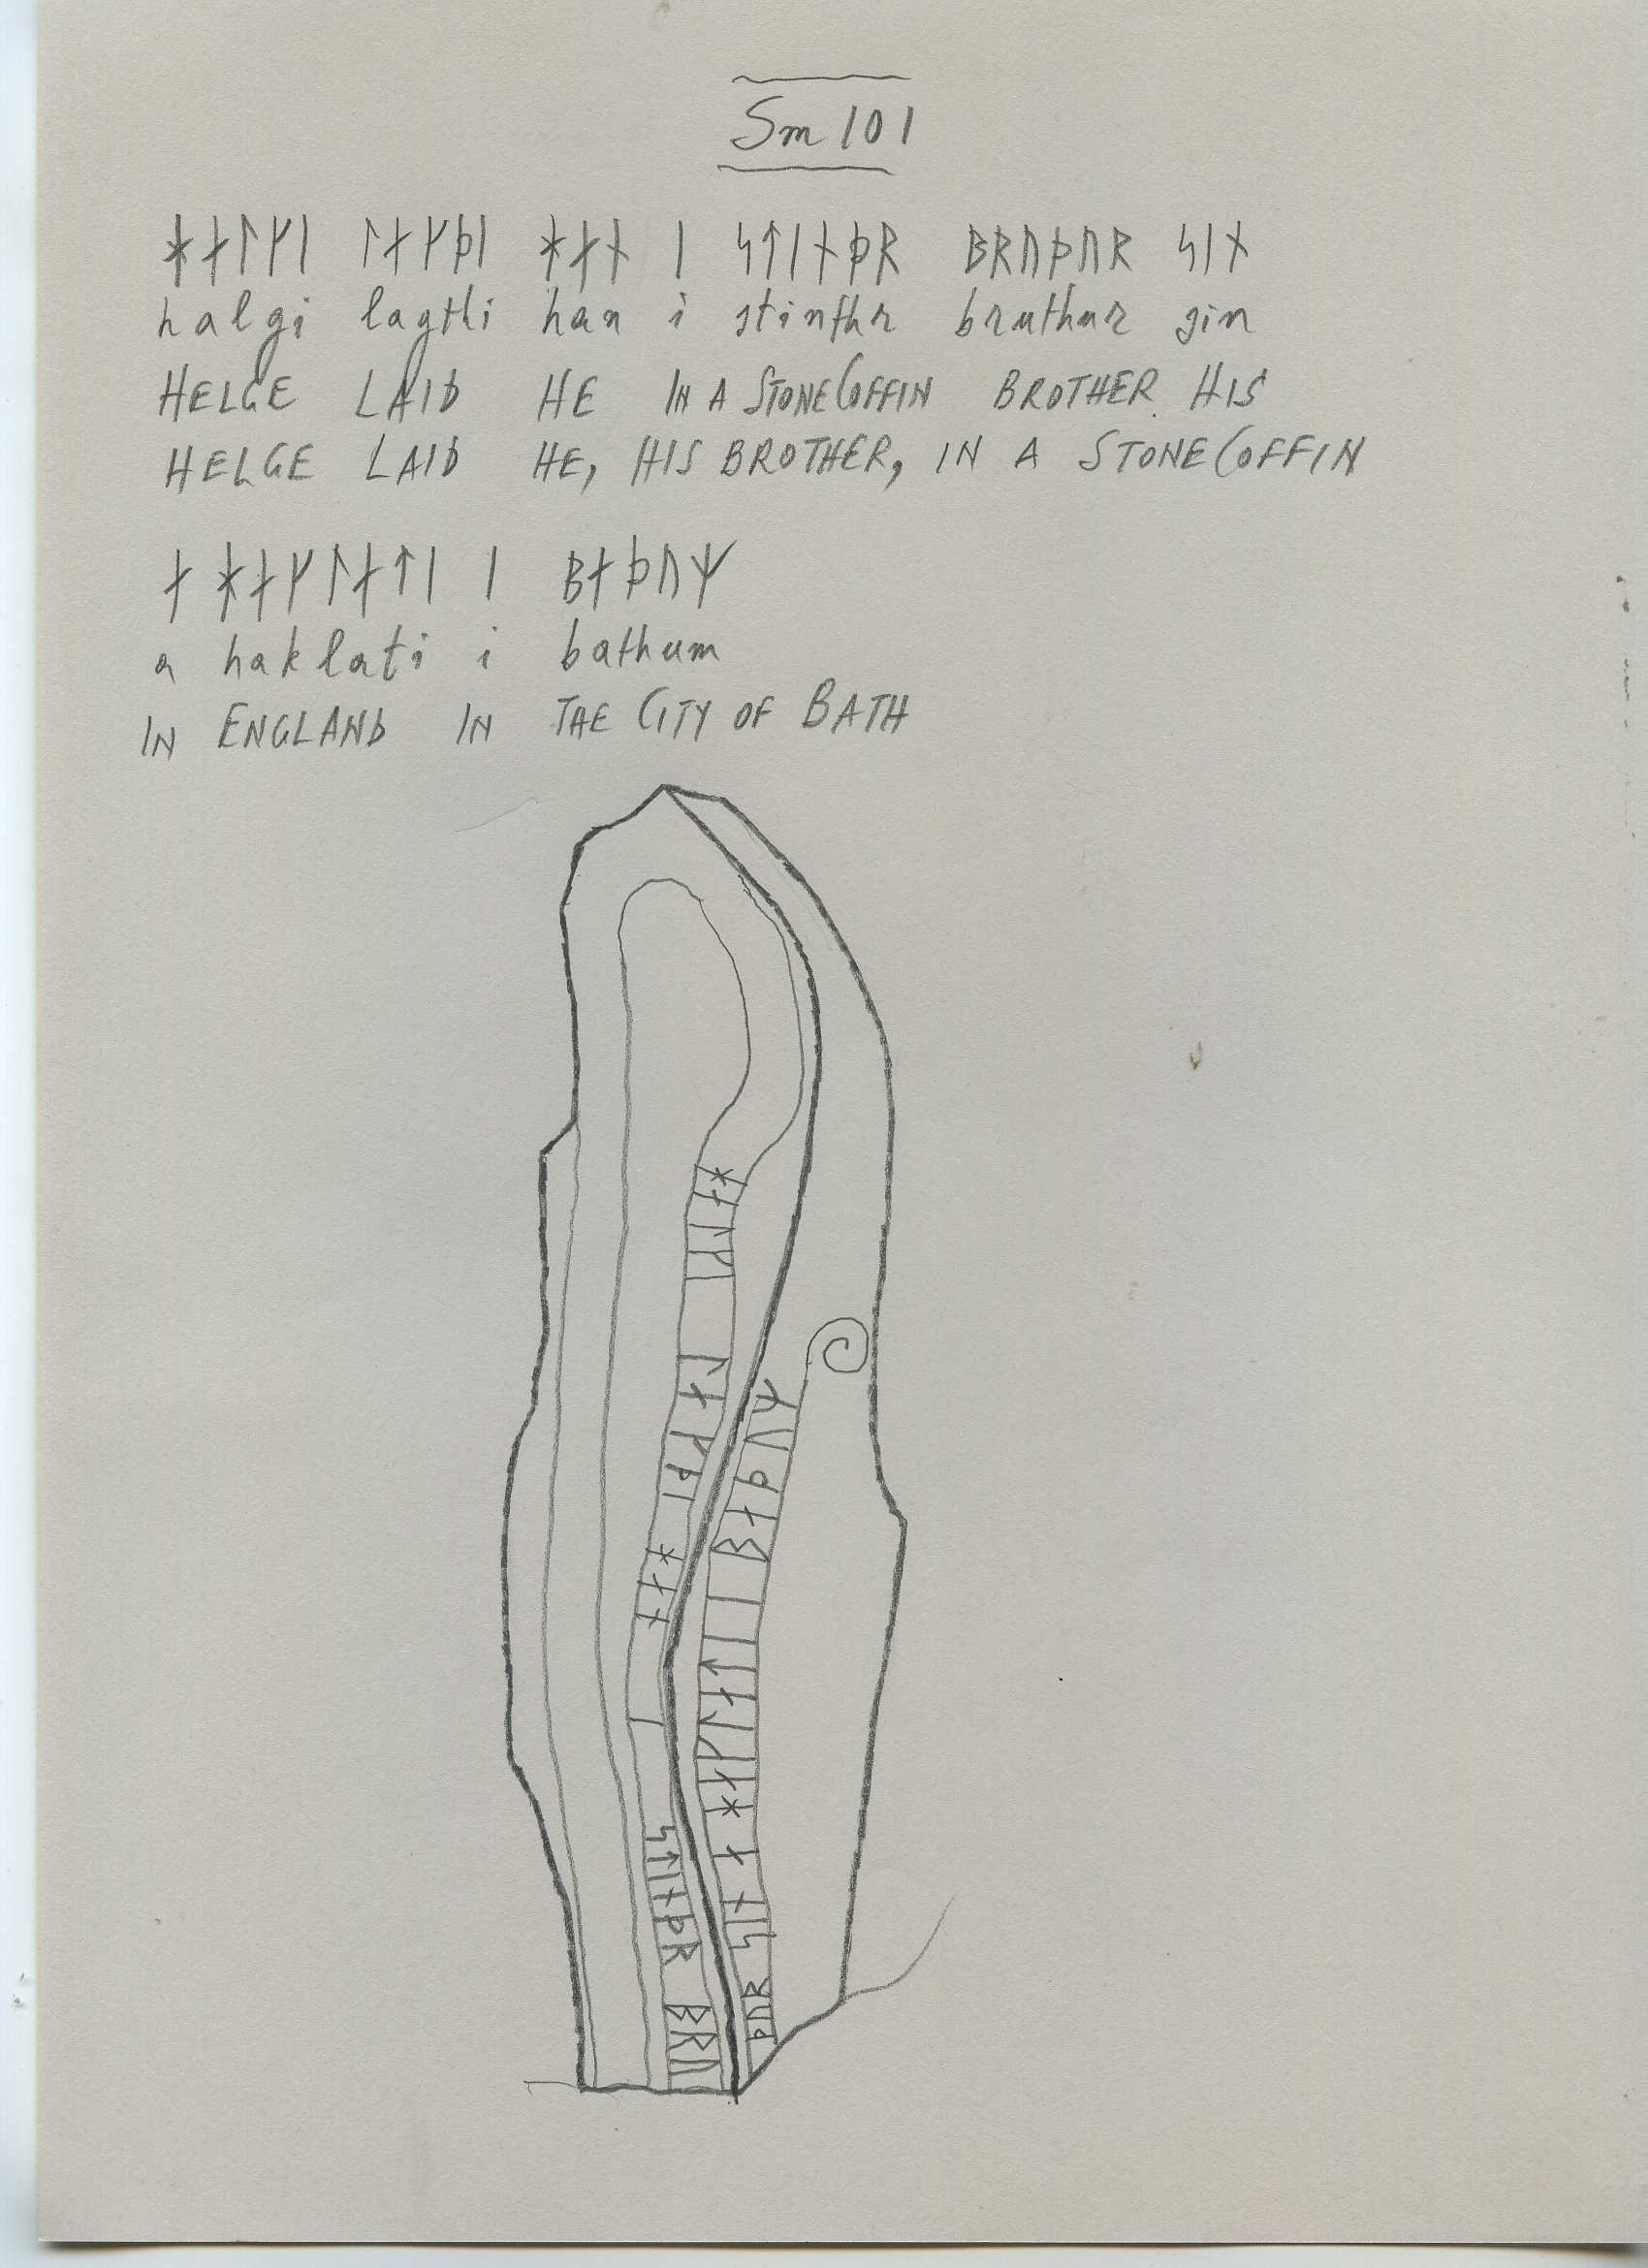 Sm 101
ᚼᛅᛚᚴᛁ ᛚᛅᚴᚦᛁ ᚼᛅᚾ ᛁ ᛋᛏᛁᚾᚦᚱ ᛒᚱᚢᚦᚢᚱ ᛋᛁᚾ
halgi lagthi han i stinthr bruthur sin
HELGE LAID HE IN A STONECOFFIN BROTHER HIS
HELGE LAID HE, HIS BROTHER, IN A STONECOFFIN
ᛅ ᚼᛅᚴᛚᛅᛏᛁ ᛁ ᛒᛅᚦᚢᛘ
a haklati i bathum
IN ENGLAND IN THE CITY OF BATH
ᚼᛅᛚᚴᛁ ᛚᛅᚴᚦᛁ ᚼᛅᚾ ᛁ ᛋᛏᛁᚾᚦᚱ ᛒᚱᚢ
ᚦᚢᚱ ᛋᛁᚾ ᛅ ᚼᛅᚴᛚᛅᛏᛁ ᛁ ᛒᛅᚦᚢᛘ